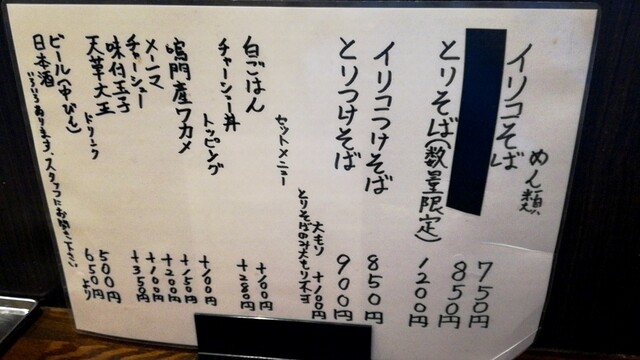 めん類
イリコそば 750円
850円
とりそば(数量限定) 1200円
イリコつけそば 850円
とりつけそば 900円
大もり +100円
とりそばのみ大もり
セットメニュー
白ごはん +100円
チャーシュー丼 +280円
トッピング
鳴門産ワカメ +100円
メンマ +150円
チャーシュー +200円
味付玉子 +100円
天草大王 +350円
ドリンク
ビール(中びん) 500円
日本酒 650円より
いろいろあります、スタッフにお聞き下さい